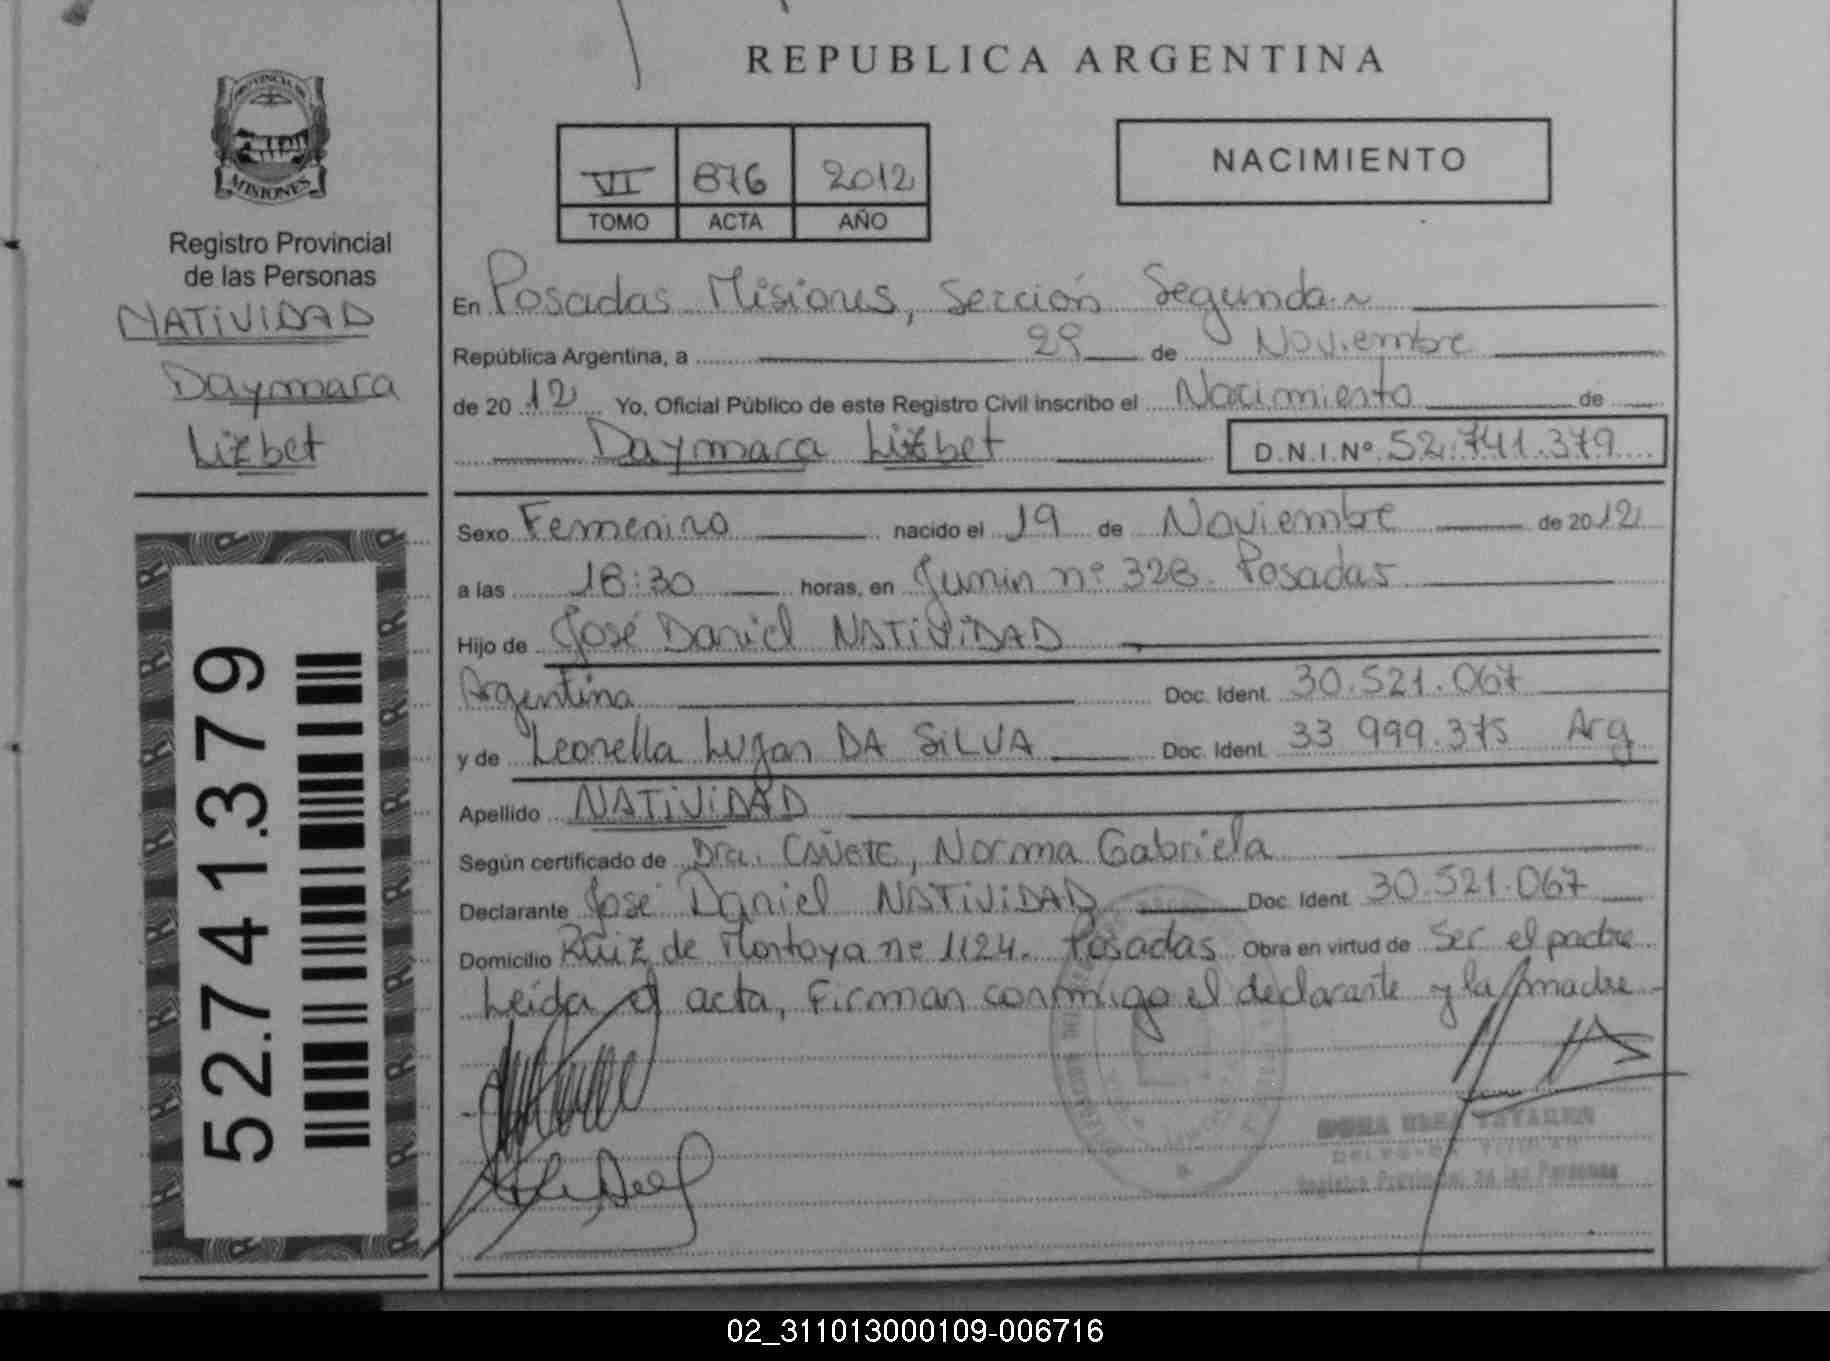 PROVINCIA DE
MISIONES
Registro Provincial
de las Personas
NATIVIDAD
Daymara
Lizbet
52.741.379
REPUBLICA ARGENTINA
VI 876 2012
TOMO ACTA AÑO
NACIMIENTO
En Posadas Misiones, Sección Segunda
República Argentina, a 29 de Noviembre
de 2012 Yo, Oficial Público de este Registro Civil inscribo el Nacimiento de
Daymara Lizbet D.N.I.Nº 52.741.379
Sexo Femenino nacido el 19 de Noviembre de 2012
a las 18:30 horas, en Junin nº 328. Posadas
Hijo de José Daniel NATIVIDAD
Argentina Doc. Ident. 30.521.067
y de Leonella Lujan DA SILVA Doc. Ident. 33 999.375 Arg
Apellido NATIVIDAD
Según certificado de Dra. CAÑETE, Norma Gabriela
Declarante José Daniel NATIVIDAD Doc. Ident. 30.521.067
Domicilio Ruiz de Montoya nº 1124. Posadas Obra en virtud de Ser el padre
Leida el acta, Firman conmigo el declarante y la madre
Registro Provincial de las Personas
02_311013000109-006716